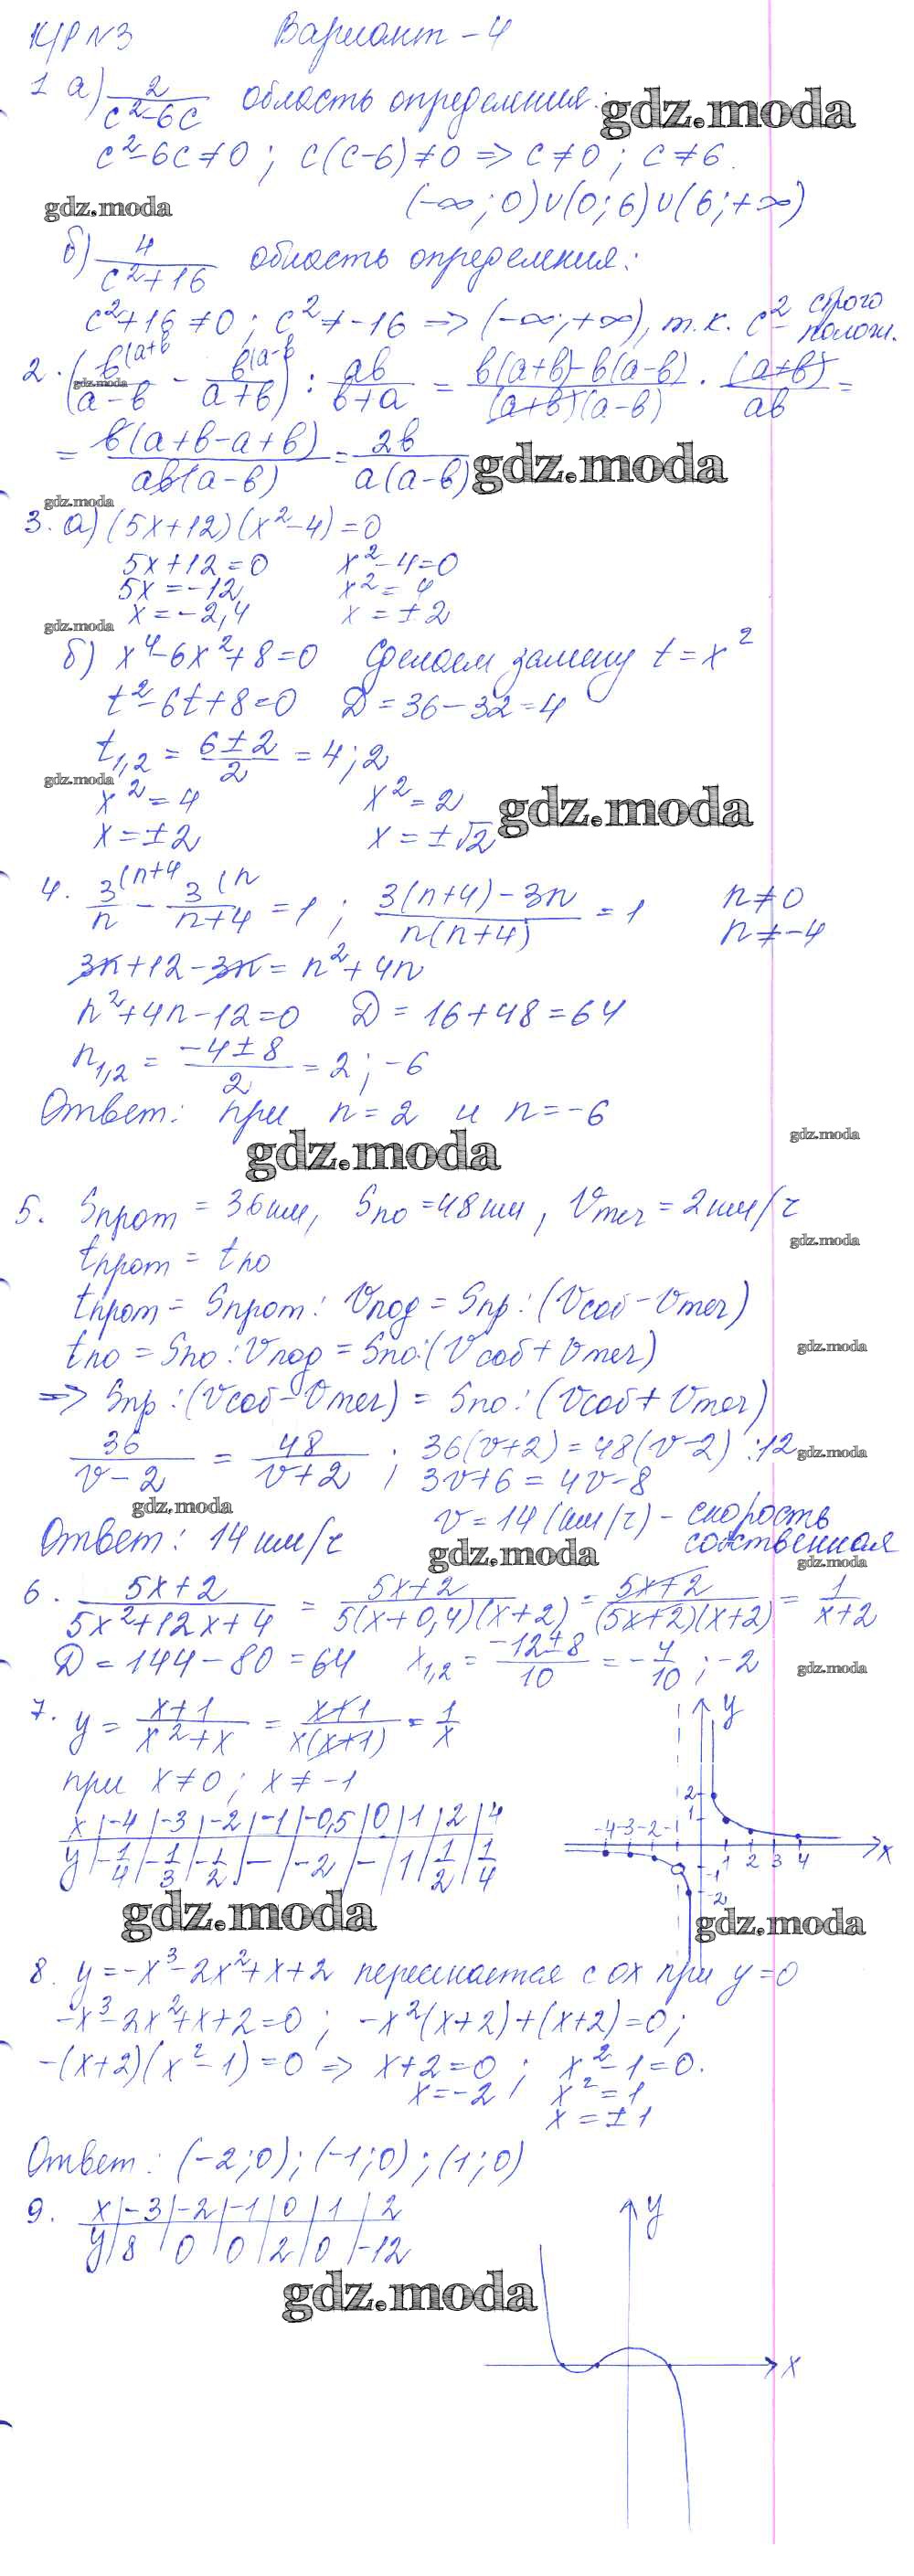 К/Р №3 Вариант - 4
1 а) 2/(c²-6c) область определения:
gdz.moda
c²-6c≠0; c(c-6)≠0 => c≠0; c≠6.
gdz.moda
(-∞;0)∪(0;6)∪(6;+∞)
б) 4/(c²+16) область определения:
c²+16≠0; c²≠-16 => (-∞;+∞), т.к. c² строго полож.
2. (b(a+b/(a-b) - b(a-b/(a+b)) : ab/(b+a) = (b(a+b)-b(a-b))/((a+b)(a-b)) · (a+b)/ab =
gdz.moda
= b(a+b-a+b)/(ab(a-b)) = 2b/(a(a-b))
gdz.moda
gdz.moda
3. а) (5x+12)(x²-4)=0
5x+12=0 x²-4=0
5x=-12 x²=4
x=-2,4 x=±2
gdz.moda
б) x⁴-6x²+8=0 Сделаем замену t=x²
t²-6t+8=0 D=36-32=4
t1,2 = (6±2)/2 = 4;2
gdz.moda
x²=4 x²=2
gdz.moda
x=±2 x=±√2
4. 3(n+4/n - 3(n/(n+4) = 1; (3(n+4)-3n)/(n(n+4)) = 1 n≠0
n≠-4
3n+12-3n=n²+4n
n²+4n-12=0 D=16+48=64
n1,2 = (-4±8)/2 = 2; -6
Ответ: при n=2 и n=-6
gdz.moda
gdz.moda
5. Sпрот=36км, Sпо=48км, Vтеч=2км/ч
gdz.moda
tпрот = tпо
tпрот = Sпрот : Vлод = Sпр : (Vсоб-Vтеч)
tпо = Sпо : Vлод = Sпо : (Vсоб+Vтеч)
gdz.moda
=> Sпр : (Vсоб-Vтеч) = Sпо : (Vсоб+Vтеч)
36/(v-2) = 48/(v+2); 36(v+2)=48(v-2) :12
gdz.moda
3v+6=4v-8
gdz.moda
v=14(км/ч) - скорость собственная
Ответ: 14 км/ч
gdz.moda
gdz.moda
6. (5x+2)/(5x²+12x+4) = (5x+2)/(5(x+0,4)(x+2)) = (5x+2)/((5x+2)(x+2)) = 1/(x+2)
D=144-80=64 x1,2 = (-12±8)/10 = -4/10; -2
gdz.moda
7. y = (x+1)/(x²+x) = (x+1)/(x(x+1)) = 1/x
при x≠0; x≠-1
x | -4 | -3 | -2 | -1 | -0,5 | 0 | 1 | 2 | 4
y | -1/4 | -1/3 | -1/2 | - | -2 | - | 1 | 1/2 | 1/4
y
2
1
-4 -3 -2 -1
1 2 3 4 x
-1
-2
gdz.moda
gdz.moda
8. y=-x³-2x²+x+2 пересекается с ох при y=0
-x³-2x²+x+2=0; -x²(x+2)+(x+2)=0;
-(x+2)(x²-1)=0 => x+2=0; x²-1=0.
x=-2; x²=1
x=±1
Ответ: (-2;0); (-1;0); (1;0)
9. x | -3 | -2 | -1 | 0 | 1 | 2
y | 8 | 0 | 0 | 2 | 0 | -12
y
gdz.moda
x